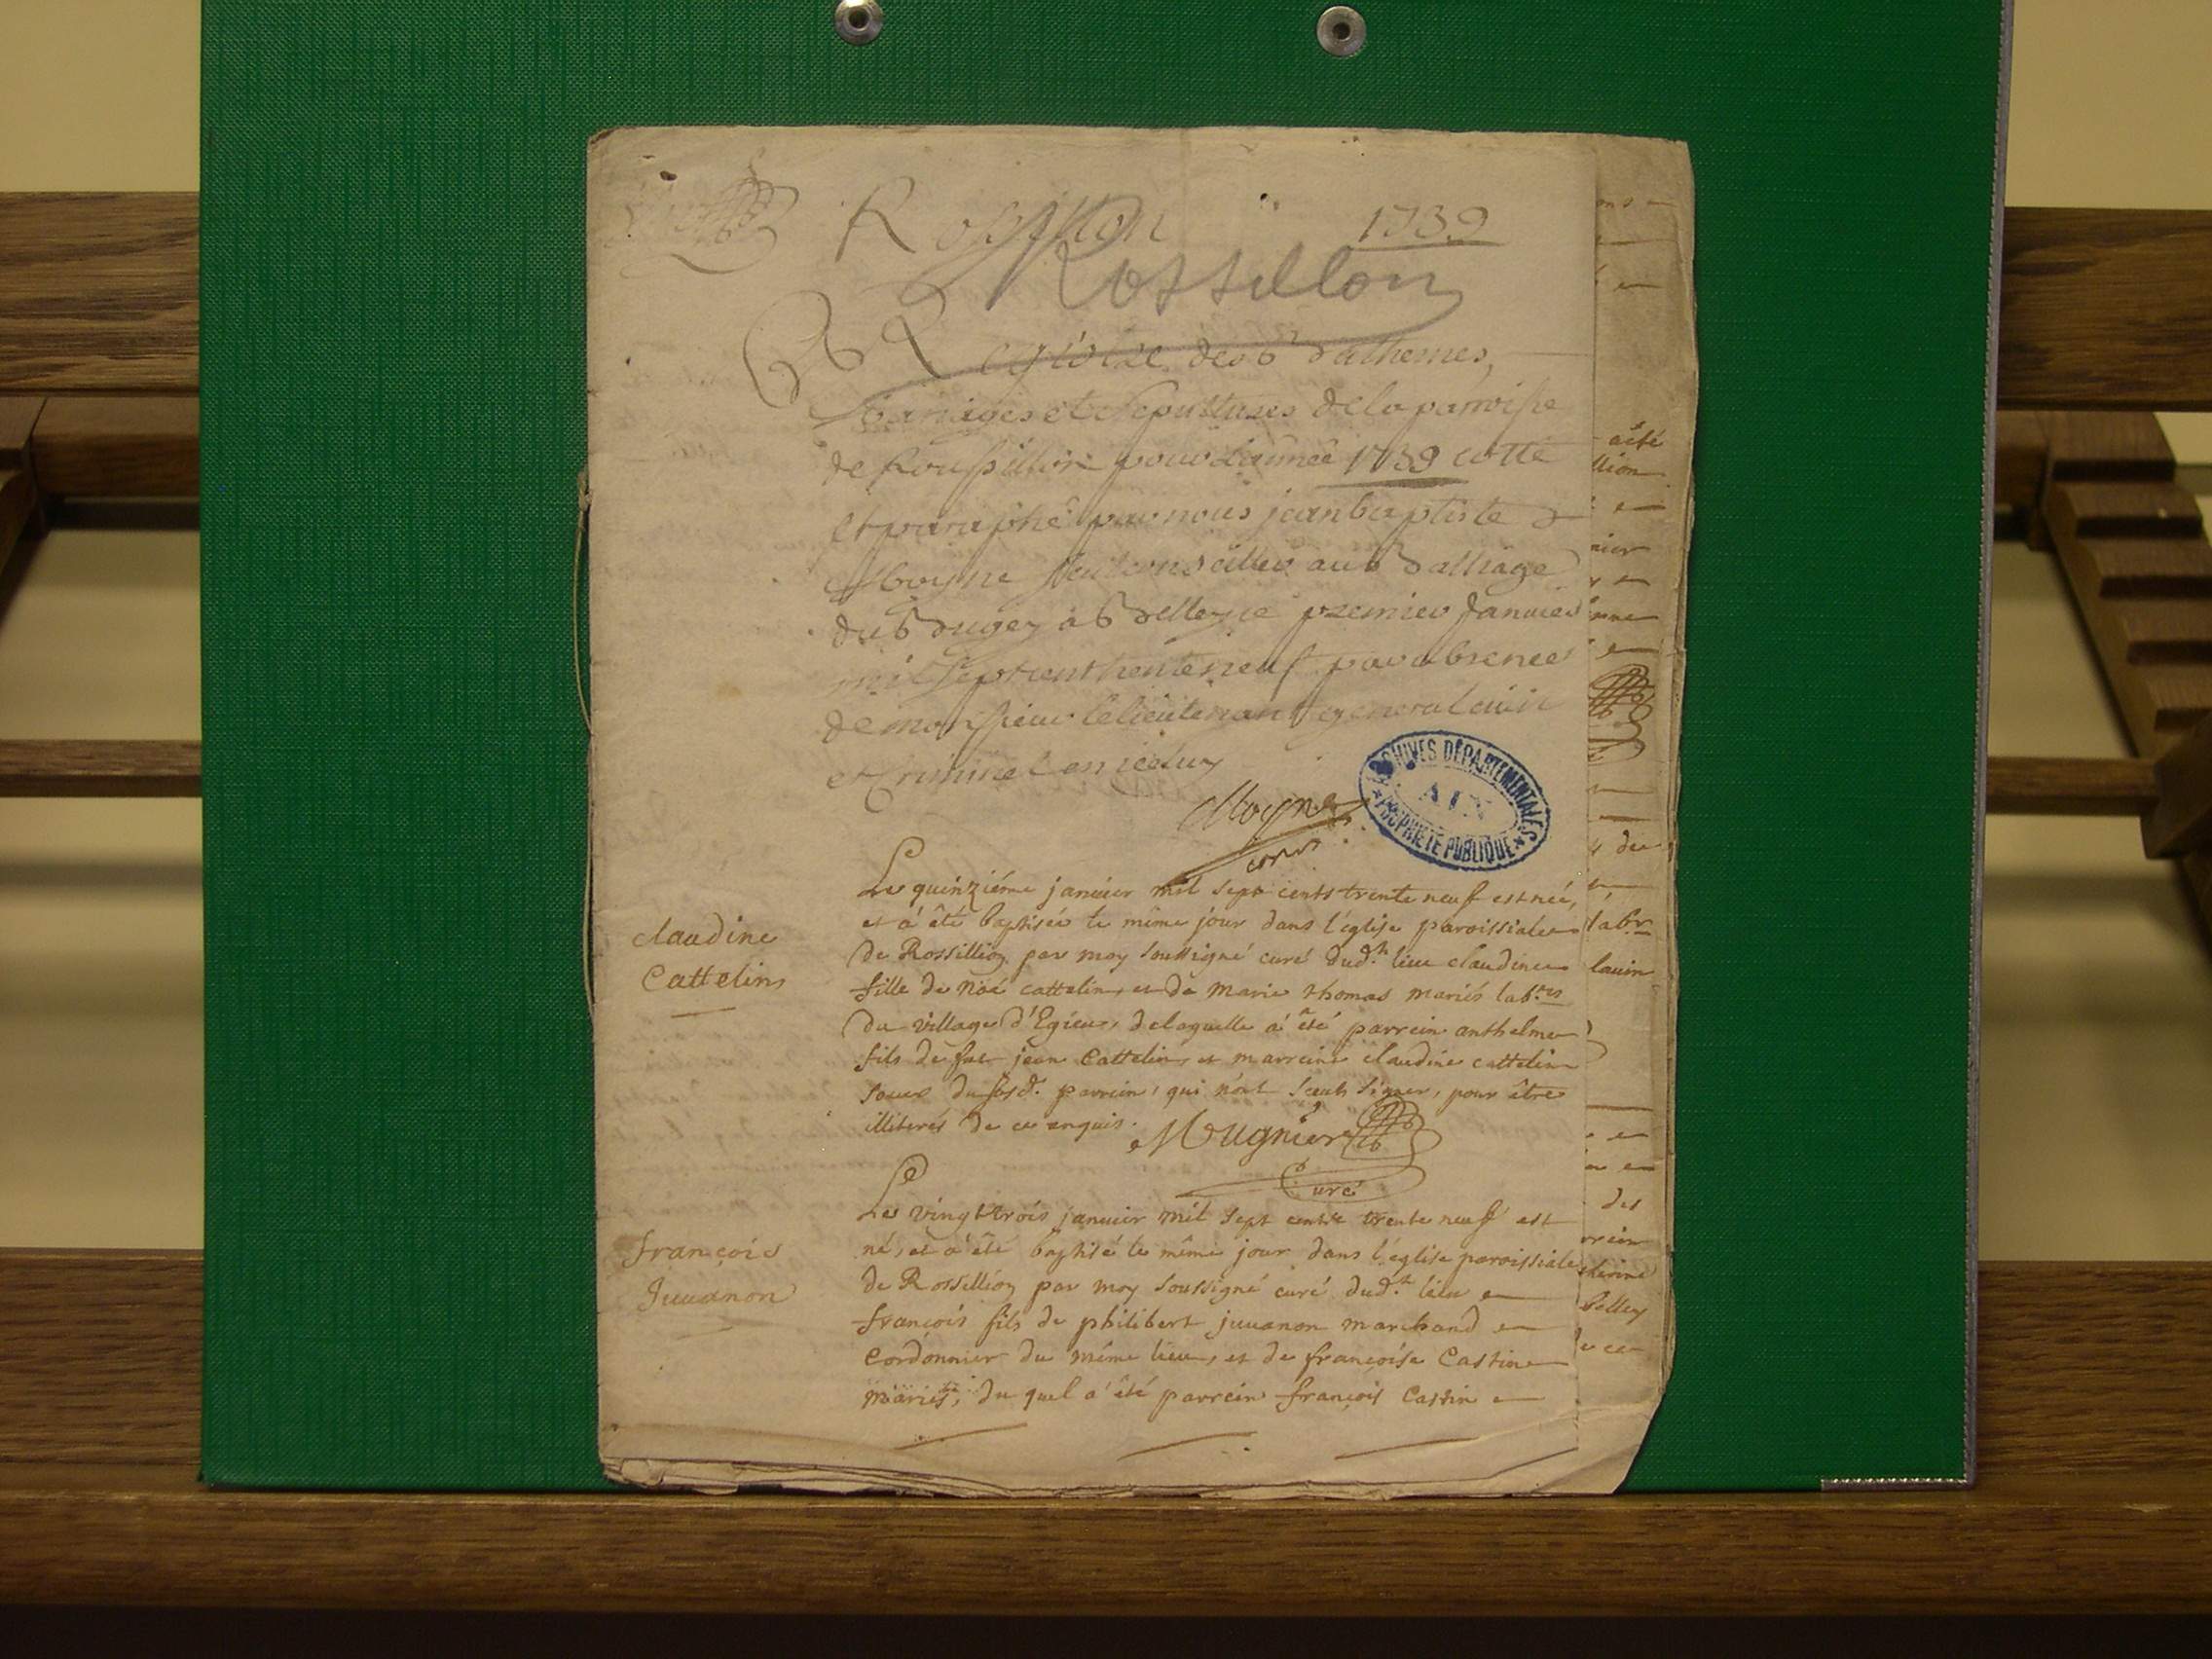 Rossillon 1739
Rossillon
Registre des Bathemes,
Mariages et Sepultures de la parroisse
de Roussillon pour l'année 1739 cotté
et paraphé par nous jean baptiste
Moyne seul conseiller au Balliage
du Bugey à Belley le premier Janvier
mil sept cent trente neuf par absence
de monsieur le lieutenant general civil
et Criminel en iceluy
Moyne
ARCHIVES DÉPARTEMENTALES
AIN
PROPRIÉTÉ PUBLIQUE
claudine
Cattelin
Le quinziéme janvier mil sept cents trente neuf est née,
et à été baptisée le même jour dans l'église paroissiale
de Rossillion par moy soussigné curé dud.t lieu claudine
fille de Noé cattelin, et de Marie thomas mariés lab.rs
du village d'Egieu, de laquelle a été parrein anthelme
fils de fut jean Cattelin, et marreine claudine cattelin
soeur du susd. parrein, qui n'ont sceuts signer, pour être
illiterés de ce enquis.
Mugnier
Curé
françois
Juuanon
Le
Le vingt trois janvier mil sept cents trente neuf est
né, et a été baptisé le même jour dans l'église paroissiale
de Rossillion par moy soussigné curé dud.t lieu
françois fils de philibert juuanon marchand
Cordonnier du même lieu, et de françoise Castin
mariés, du quel a été parrein françois Castin
a été
llion
nier
de
labr
lauin
des
rrein
therine
belley
de ce